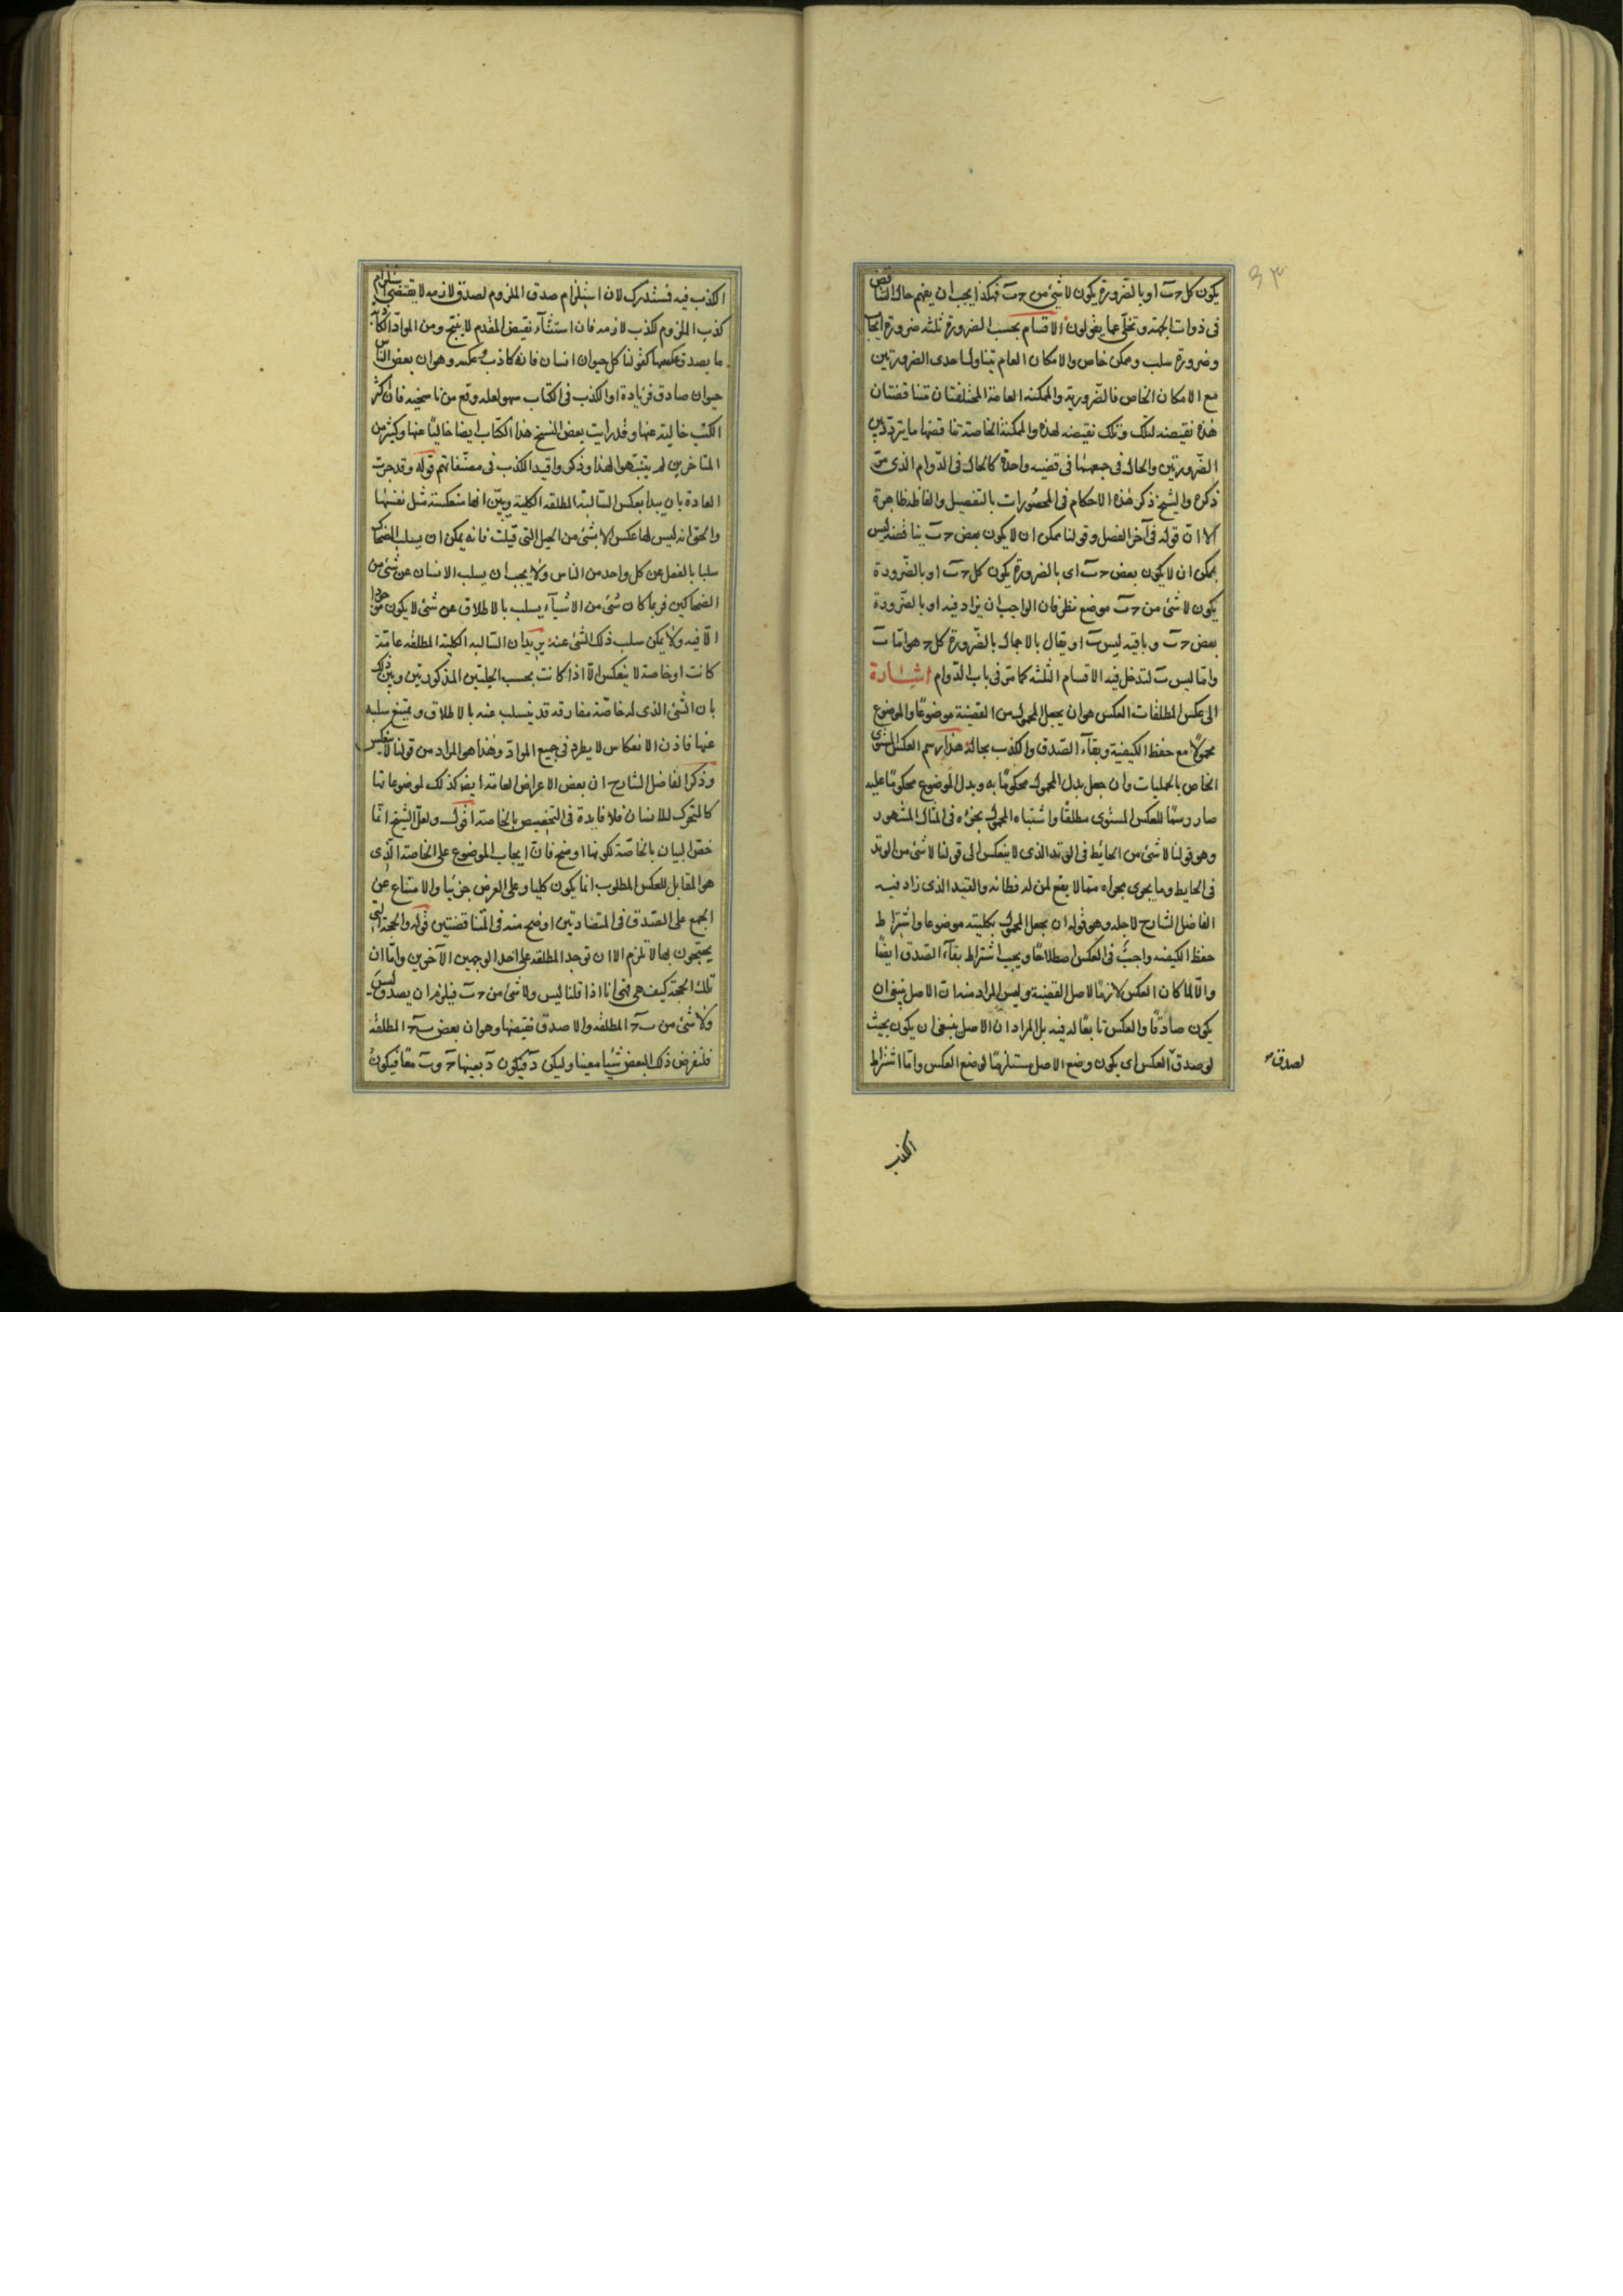 ٤٣
يكون كل ح ب او بالضرورة يكون لا شئ من ح ب فهكذا يجب ان يفهم حال التناقض
فى ذوات الجهة وتخلى عما يقولون الاقسام بحسب الضرورة ثلثة ضرورة ايجاب
وضرورة سلب وممكن خاص والامكان العام يتناول احدى الضرورتين
مع الامكان الخاص فالضرورية والممكنة العامة المختلفتان متناقضتان
هذه نقيضة لتلك وتلك نقيضة لهذه والممكنة الخاصة تناقضها ما يتردد بين
الضرورتين والحال فى جمعهما فى قضية واحدة كالحال فى الدوام الذى مر
ذكره والشيخ ذكر هذه الاحكام فى المحصورات بالتفصيل والفاظه ظاهرة
الا ان قوله فى آخر الفصل وقولنا ممكن ان لا يكون بعض ح ب يناقضه ليس
بممكن ان لا يكون بعض ح ب اى بالضرورة يكون كل ح ب او بالضرورة
يكون لا شئ من ح ب موضع نظر فان الواجب ان يزاد فيه او بالضرورة
بعض ح ب وباقيه ليس ب او يقال بالاجمال بالضرورة كل ح هو اما ب
واما ليس ب لتدخل فيه الاقسام الثلثة كما مر فى باب الدوام اشارة
الى عكس المطلقات العكس هو ان يجعل المحمول من القضية موضوعا والموضوع
محمولا مع حفظ الكيفية وبقاء الصدق والكذب بحاله هذا رسم العكس المستوى
الخاص بالحمليات وان جعل بدل المحمول محكوما به وبدل الموضوع محكوما عليه
صار رسما للعكس المستوى مطلقا واشتباه المحمول بجزءه فى المثال المشهور
وهو قولنا لا شئ من الحائط فى الوتد الذى لا ينعكس الى قولنا لا شئ من الوتد
فى الحايط وما يجرى مجراه مما لا يقع لمن له فطانة والقيد الذى زاد فيه
الفاضل الشارح لاجله وهو قوله ان يجعل المحمول بكليته موضوعا واشتراط
حفظ الكيفية واجب فى العكس اصطلاحا ويجب اشتراط بقاء الصدق ايضا
والا لما كان العكس لازما لاصل القضية وليس المراد منه ان الاصل ينبغى ان
يكون صادقا والعكس تابعا له فيه بل المراد ان الاصل ينبغى ان يكون بحيث
لو صدق العكس اى يكون وضع الاصل مستلزما لوضع العكس واما اشتراط
لصدق
الكذب
الكذب فيه فمستدرك لان استلزام صدق الملزوم لصدق لازمه لا يقتضى استلزام
كذب الملزوم لكذب لازمه فان استثناء نقيض المقدم لا ينتج ومن المواد الكاذبة
ما يصدق عكسها كقولنا كل حيوان انسان فانه كاذب وعكسه وهو ان بعض الناس
حيوان صادق فزيادة او الكذب فى الكتاب سهو لعله وقع من ناسخيه فان اكثر
الكتب خالية عنها وقد رايت بعض النسخ هذا الكتاب ايضا خاليا عنها وكثير من
المتاخرين لم يتنبهوا لهذا وذكروا قيد الكذب فى مصنفاتهم قوله وقد جرت
العادة بان يبدا بعكس السالبة المطلقة الكلية ويبين انها منعكسة مثل نفسها
والحق انه ليس لها عكس الا بشئ من الحيل التى قيلت فانه يمكن ان يسلب الضحاك
سلبا بالفعل عن كل واحد من الناس ولا يجب ان يسلب الانسان عن شئ من
الضحاكين فربما كان شئ من الاشياء يسلب بالاطلاق عن شئ لا يكون موجودا
الا فيه ولا يمكن سلب ذلك الشئ عنه يريد ان السالبة الكلية المطلقة عامة
كانت او خاصة لا ينعكس الا اذا كانت بحسب الحيلتين المذكورتين وبين ذلك
بان الشئ الذى له خاصة مفارقة قد يسلب عنه بالاطلاق ويمتنع سلبه
عنها فاذن الانعكاس لا يطرد فى جميع المواد وهذا هو المراد من قولنا لا ينعكس
وذكر الفاضل الشارح ان بعض الاعراض العامة ايضا كذلك لموضوعاتها
كالمتحرك للانسان فلا فايدة فى التخصيص بالخاصة اقول ولعل الشيخ انما
خص البيان بالخاصة لكونها اوضح فان ايجاب الموضوع على الخاصة الذى
هو المقابل للعكس المطلوب انما يكون كليا وعلى العرض جزئيا والامتناع عن
الجمع على الصدق فى المتضادتين اوضح منه فى المتناقضتين قوله والحجة التى
يحتجون بها لا تلزم الا ان توجد المطلقة على احد الوجهين الآخرين واما ان
تلك الحجة كيف هى فهى انا اذا قلنا ليس ولا شئ من ح ب فيلزم ان يصدق ليس
ولا شئ من ب ح المطلقة والا صدق نقيضها وهو ان بعض ب ح المطلقة
فلنفرض ذلك البعض شيئا معينا وليكن د فيكون د بعينها ح وب معا فيكون